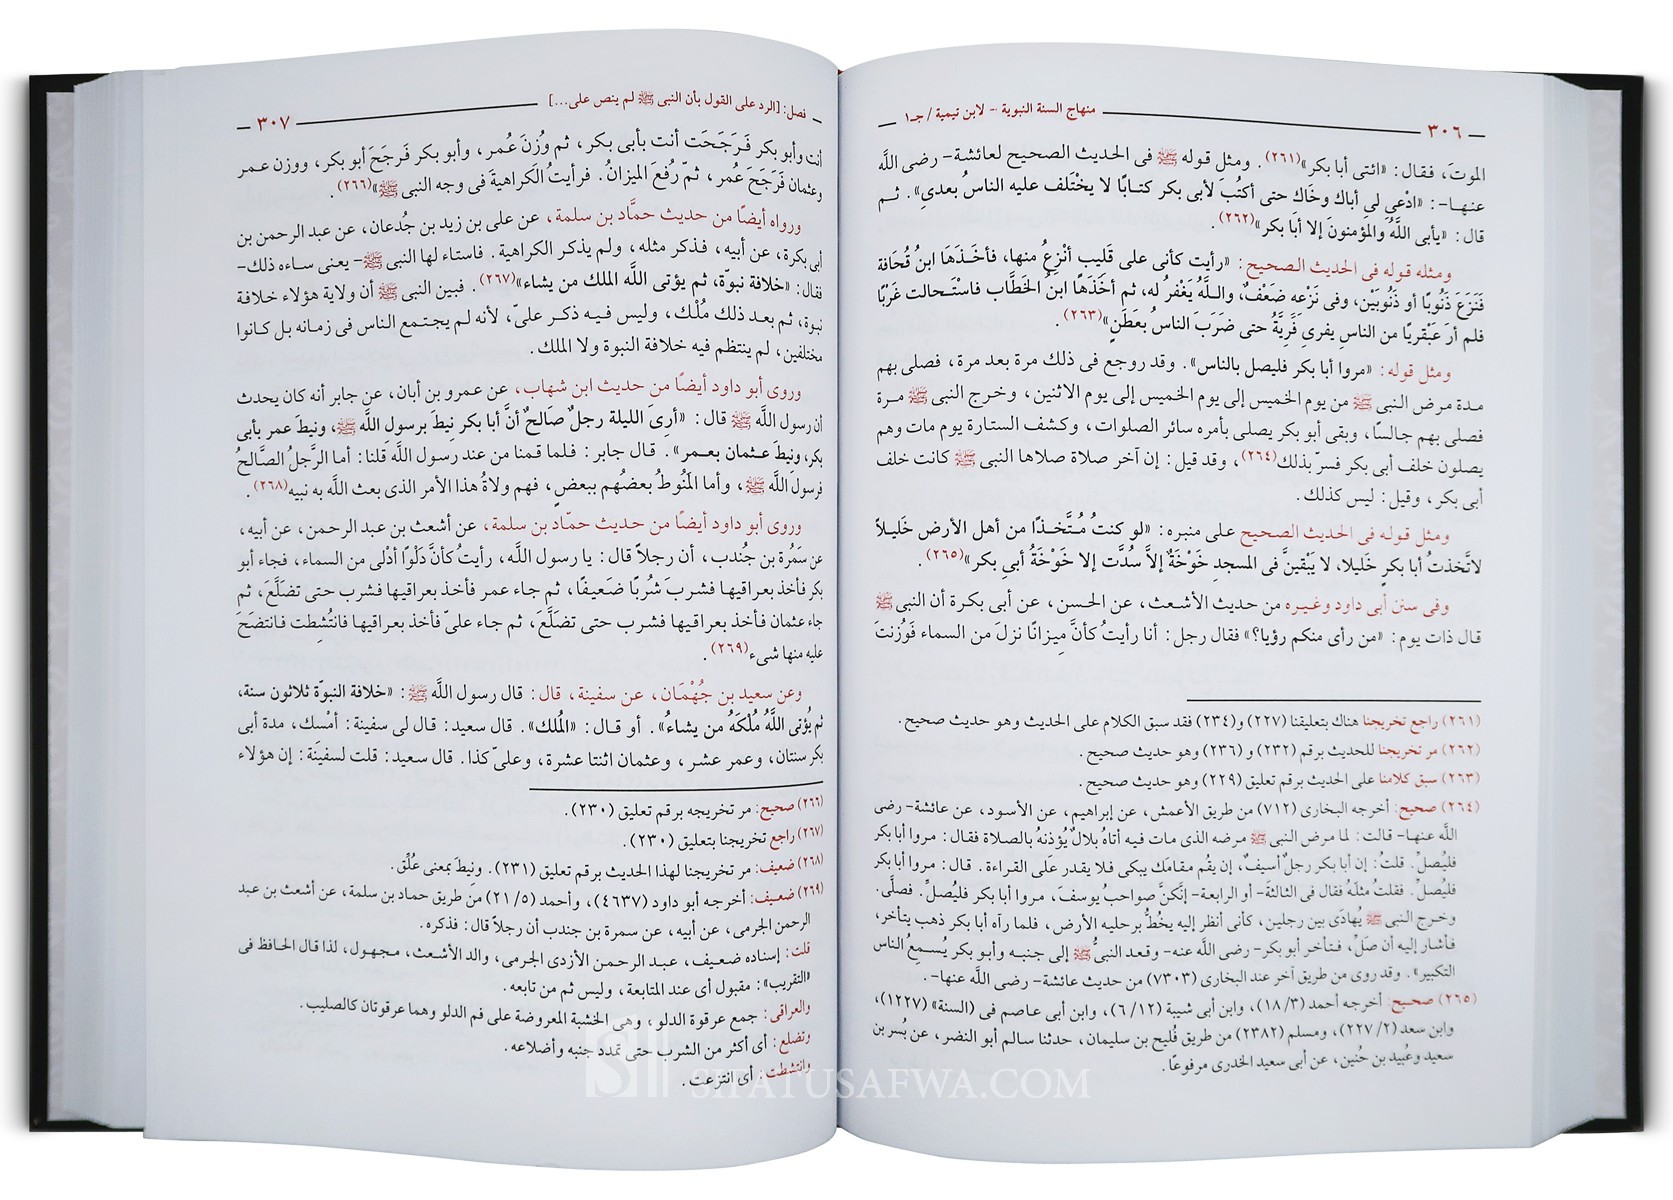 ٣٠٦ منهاج السنة النبوية - لابن تيمية / جـ١
الموتَ، فقال: «ائتى أبا بكر»(٢٦١). ومثل قوله ﷺ فى الحديث الصحيح لعائشة- رضى اللَّه
عنهـا-: «ادْعِى لى أباك وخَاك حتى أكتُبَ لأبى بكر كتـابًا لا يخْتَلف عليه الناسُ بعدى». ثـم
قال: «يأبى اللَّهُ والمؤمنونَ إلا أبا بكر»(٢٦٢).
ومثله قوله فى الحديث الصحيح: «رأيت كأنى على قَليبٍ أنْزِعُ منها، فأخَذَهَا ابنُ قُحَافة
فَنَزَعَ ذَنُوبًا أو ذَنُوبَيْن، وفى نَزْعِه ضَعْفٌ، واللَّهُ يَغْفرُ له، ثم أخَذَهَا ابنُ الخَطَّاب فاسْتَحالت غَرْبًا
فلم أرَ عَبْقريًا من الناسِ يفرى فَرِيَّهُ حتى ضَرَبَ الناسُ بعَطَنٍ»(٢٦٣).
ومثل قوله: «مروا أبا بكر فليصل بالناس». وقد روجع فى ذلك مرة بعد مرة، فصلى بهم
مدة مرض النبى ﷺ من يوم الخميس إلى يوم الخميس إلى يوم الاثنين، وخرج النبى ﷺ مرة
فصلى بهم جالسًا، وبقى أبو بكر يصلى بأمره سائر الصلوات، وكشف الستارة يوم مات وهم
يصلون خلف أبى بكر فسرّ بذلك(٢٦٤)، وقد قيل: إن آخر صلاة صلاها النبى ﷺ كانت خلف
أبى بكر، وقيل: ليس كذلك.
ومثل قـوله فى الحديث الصحيح على منبره: «لو كنتُ مُـتَّخـذًا من أهل الأرض خَليلاً
لاتَّخذتُ أبا بكرٍ خَليلا، لا يَبْقينَّ فى المسجدِ خَوْخَةٌ إلاَّ سُدَّت إلا خَوْخَةُ أبى بكر»(٢٦٥).
وفى سنن أبى داود وغيره من حديث الأشعث، عن الحسن، عن أبى بكرة أن النبى ﷺ
قال ذات يوم: «من رأى منكم رؤيا؟» فقال رجل: أنا رأيتُ كأنَّ مِيزانًا نزلَ من السماء فَوُزنتَ
(٢٦١) راجع تخريجنا هناك بتعليقنا (٢٢٧) و(٢٣٤) فقد سبق الكلام على الحديث وهو حديث صحيح.
(٢٦٢) مر تخريجنا للحديث برقم (٢٣٢) و (٢٣٦) وهو حديث صحيح.
(٢٦٣) سبق كلامنا على الحديث برقم تعليق (٢٢٩) وهو حديث صحيح.
(٢٦٤) صحيح: أخرجه البخارى (٧١٢) من طريق الأعمش، عن إبراهيم، عن الأسود، عن عائشة- رضى
اللَّه عنها- قالت: لما مرض النبى ﷺ مرضه الذى مات فيه أتاهُ بلالٌ يُؤذنهُ بالصلاة فقال: مروا أبا بكر
فليُصلِّ. قلتُ: إن أبا بكر رجلٌ أسيفٌ، إن يقُم مقامَك يبكى فلا يقدر على القراءة. قال: مروا أبا بكر
فليُصلِّ. فقلتُ مثلَهُ فقال فى الثالثة- أو الرابعة- إنَّكنَّ صواحبُ يوسف، مروا أبا بكر فليُصلِّ. فصلَّى.
وخرج النبى ﷺ يُهادَى بين رجلين، كأنى أنظر إليه يخُطُّ برجليه الأرض، فلما رآه أبا بكر ذهب يتأخر،
فأشار إليه أن صَلِّ، فـتأخر أبو بكر- رضى اللَّه عنه- وقـعد النبىُّ ﷺ إلى جنبـه وأبو بكر يُسـمعُ الناس
التكبير». وقد روى من طريق آخر عند البخارى (٧٣٠٣) من حديث عائشة- رضى اللَّه عنها-.
(٢٦٥) صحيح: أخرجه أحمد (١٨/٣)، وابن أبى شيبة (٦/١٢)، وابن أبى عاصم فى (السنة» (١٢٢٧)،
وابن سعد (٢/ ٢٢٧)، ومسلم (٢٣٨٢) من طريق فُليح بن سليمان، حدثنا سالم أبو النضر، عن بُسر بن
سعيد وعُبيد بن حُنين، عن أبى سعيد الخدرى مرفوعًا.
فصل: [الرد على القول بأن النبى ﷺ لم ينص على...] ٣٠٧
أنت وأبو بكر فَـرَجَحَت أنت بأبى بكر، ثم وُزنَ عُـمر، وأبو بكر فَرجَحَ أبو بكر، ووزن عمر
وعثمان فَرَجَحَ عُمر، ثمّ رُفِعَ الميزانُ. فرأيتُ الكَراهيةَ فى وجه النبى ﷺ»(٢٦٦).
ورواه أيضًا من حديث حمَّاد بن سلمة، عن على بن زيد بن جُدعان، عن عبد الرحمن بن
أبى بكرة، عن أبيه، فذكر مثله، ولم يذكر الكراهية. فاستاء لها النبى ﷺ- يعنى ساءه ذلك-
فقال: «خلافة نبوّة، ثم يؤتى اللَّه الملك من يشاء»(٢٦٧). فبين النبى ﷺ أن ولاية هؤلاء خلافة
نبوة، ثم بعد ذلك مُلْك، وليس فيه ذكر علىّ، لأنه لم يجتمع الناس فى زمانه بل كانوا
مختلفين، لم ينتظم فيه خلافة النبوة ولا الملك.
وروى أبو داود أيضًا من حديث ابن شهاب، عن عمرو بن أبان، عن جابر أنه كان يحدث
أن رسول اللَّه ﷺ قال: «أرىَ الليلة رجلٌ صَالحٌ أنَّ أبا بكر نِيطَ برسول اللَّه ﷺ، ونيطَ عمر بأبى
بكر، ونيطَ عـثمان بعـمر». قال جابر: فـلما قمنا من عند رسول اللَّه قلنا: أما الرَّجلُ الصَّالحُ
فرسول اللَّه ﷺ، وأما المَنُوطُ بعضُهم ببعضٍ، فهم ولاةُ هذا الأمر الذى بعث اللَّه به نبيه(٢٦٨).
وروى أبو داود أيضًا من حديث حمّاد بن سلمة، عن أشعث بن عبد الرحمن، عن أبيه،
عن سَمُرة بن جُندب، أن رجلاً قال: يا رسول اللَّه، رأيتُ كأنَّ دَلْوًا أدْلى من السماء، فجاء أبو
بكر فأخذ بعراقيها فشربَ شُربًا ضَعيفًا، ثم جاء عمر فأخذ بعراقيها فشرب حتى تضلَّعَ، ثم
جاء عثمان فأخذ بعراقيها فشرب حتى تضَلَّعَ، ثم جاء علىّ فأخذ بعراقيها فانتُشِطت فانتضَحَ
عليه منها شىء(٢٦٩).
وعن سعيد بن جُهْمَان، عن سفينة، قال: قال رسول اللَّه ﷺ: «خلافة النبوّة ثلاثون سنة،
ثم يُؤتى اللَّهُ مُلْكَهُ من يشاءُ». أو قال: «المُلك». قال سعيد: قال لى سفينة: أمْسك، مدة أبى
بكر سنتان، وعمر عشر، وعثمان اثنتا عشرة، وعلىّ كذا. قال سعيد: قلت لسفينَة: إن هؤلاء
(٢٦٦) صحيح: مر تخريجه برقم تعليق (٢٣٠).
(٢٦٧) راجع تخريجنا بتعليق (٢٣٠).
(٢٦٨) ضعيف: مر تخريجنا لهذا الحديث برقم تعليق (٢٣١). ونيطَ بمعنى عُلِّق.
(٢٦٩) ضعيف: أخرجه أبو داود (٤٦٣٧)، وأحمد (٢١/٥) من طريق حماد بن سلمة، عن أشعث بن عبد
الرحمن الجرمى، عن أبيه، عن سمرة بن جندب أن رجلاً قال: فذكره.
قلت: إسناده ضعيف، عبد الرحمن الأزدى الجرمى، والد الأشعث، مجهول، لذا قال الحافظ فى
«التقريب»: مقبول أى عند المتابعة، وليس ثم من تابعه.
والعراقى: جمع عرقوة الدلو، وهى الخشبة المعروضة على فم الدلو وهما عرقوتان كالصليب.
وتضلع: أى أكثر من الشرب حتى تمدد جنبه وأضلاعه.
وانتشطت: أى انتزعت.
SIFATUSAFWA.COM